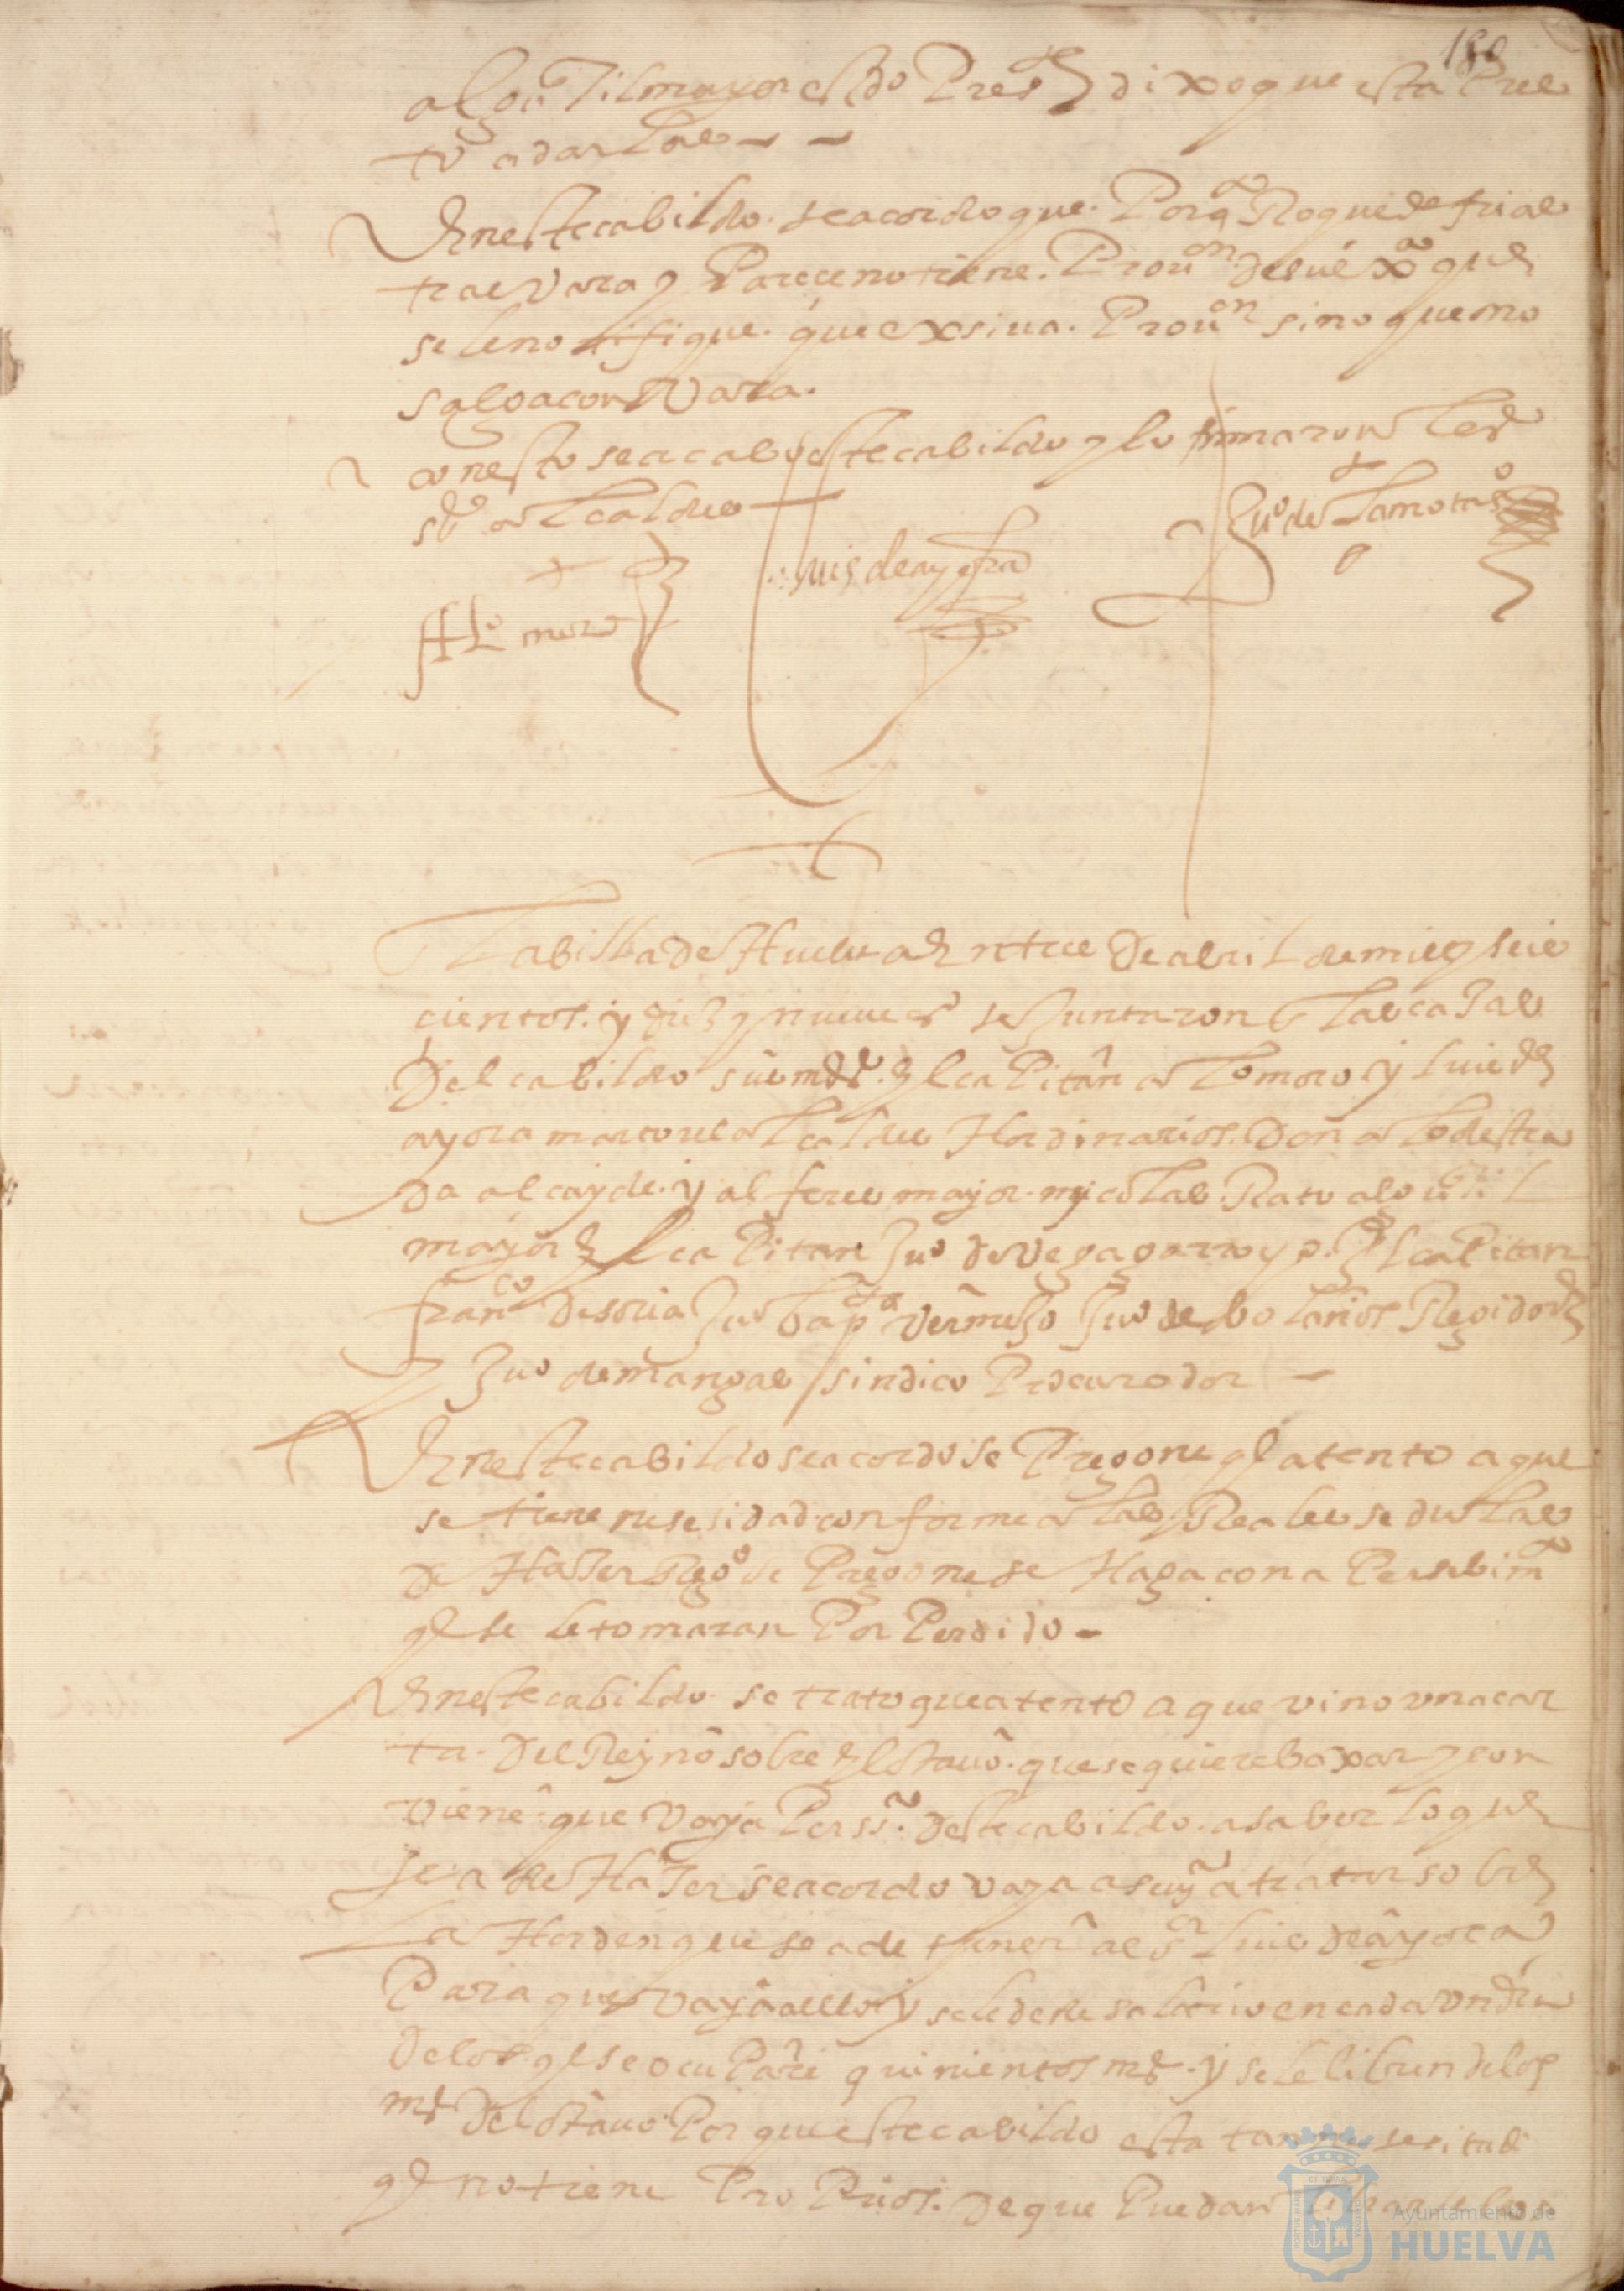 188
alguazil mayor estdo pres^te dixo que esta pres
to a darlas
En este cabildo se acordo que Porq^to Roque de frias
trae vara y Parece no tiene Prou^on de su ex^a que
se le notifique que exsiua Prou^on sino que no
salga con Vara
con esto se acabo este cabildo y lo firmaron los
s^s alcaldes
Ju^o de Lamotas
luis de ayora
Al^o moro
La billa de Huelua En tres de abril de mil y seis
cientos y diez y nueue as se Juntaron En las casas
Del cabildo sus mds El caPitan al^o moro y luis de
ayora martores alcaldes Hordinarios Don al^o destra
da alcayde y alferes mayor nycolas Rato alguazil
mayor El caPitan Ju^o de Vega garro y p El caPitan
fran^co de soria Ju^o bap^ta vermejo Ju^o de bolaños Regidores
Ju^o de mangas sindico Procurador
En este cabildo se acordo se Pregone q atento a que
se tiene nesesidad conforme a las Reales sedulas
de Hazer Reg^o se Pregone se Haga con aPersebim^to
q se le tomaran Por Perdido
En este cabildo se trato que atento a que vino vna car
ta Del Reyno sobre El otauo que se quiere baxar y con
viene que Vaya Perss^a Deste cabildo a saber lo que
se a de Hazer se acordo vaya a seuy^a a tratar sobre
La Horden que se a de tener al s^or luis de ayora
Para que vaya a ello y se le de de salario en cada vn dia
De los q se ocuPare quinientos ms y se le libren de los
ms Del otauo Por que este cabildo esta tan nesesitado
q no tiene ProPrios De que Puedan
Ayuntamiento de
HUELVA